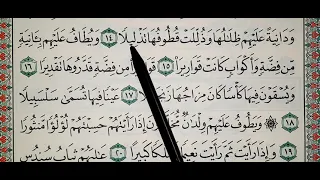 وَدَانِيَةً عَلَيْهِمْ ظِلَٰلُهَا وَذُلِّلَتْ قُطُوفُهَا تَذْلِيلًا ١٤ وَيُطَافُ عَلَيْهِم بِـَٔانِيَةٍ
مِّن فِضَّةٍ وَأَكْوَابٍ كَانَتْ قَوَارِيرَا۠ ١٥ قَوَارِيرَا۟ مِن فِضَّةٍ قَدَّرُوهَا تَقْدِيرًا ١٦
وَيُسْقَوْنَ فِيهَا كَأْسًا كَانَ مِزَاجُهَا ١٧ عَيْنًا فِيهَا تُسَمَّىٰ سَلْسَبِيلًا
١٨ وَيَطُوفُ عَلَيْهِمْ وِلْدَٰنٌ إِذَا رَأَيْتَهُمْ حَسِبْتَهُمْ لُؤْلُؤًا مَّنثُورًا
١٩ وَإِذَا رَأَيْتَ ثَمَّ رَأَيْتَ كَبِيرًا ٢٠ عَٰلِيَهُمْ ثِيَابُ سُندُسٍ